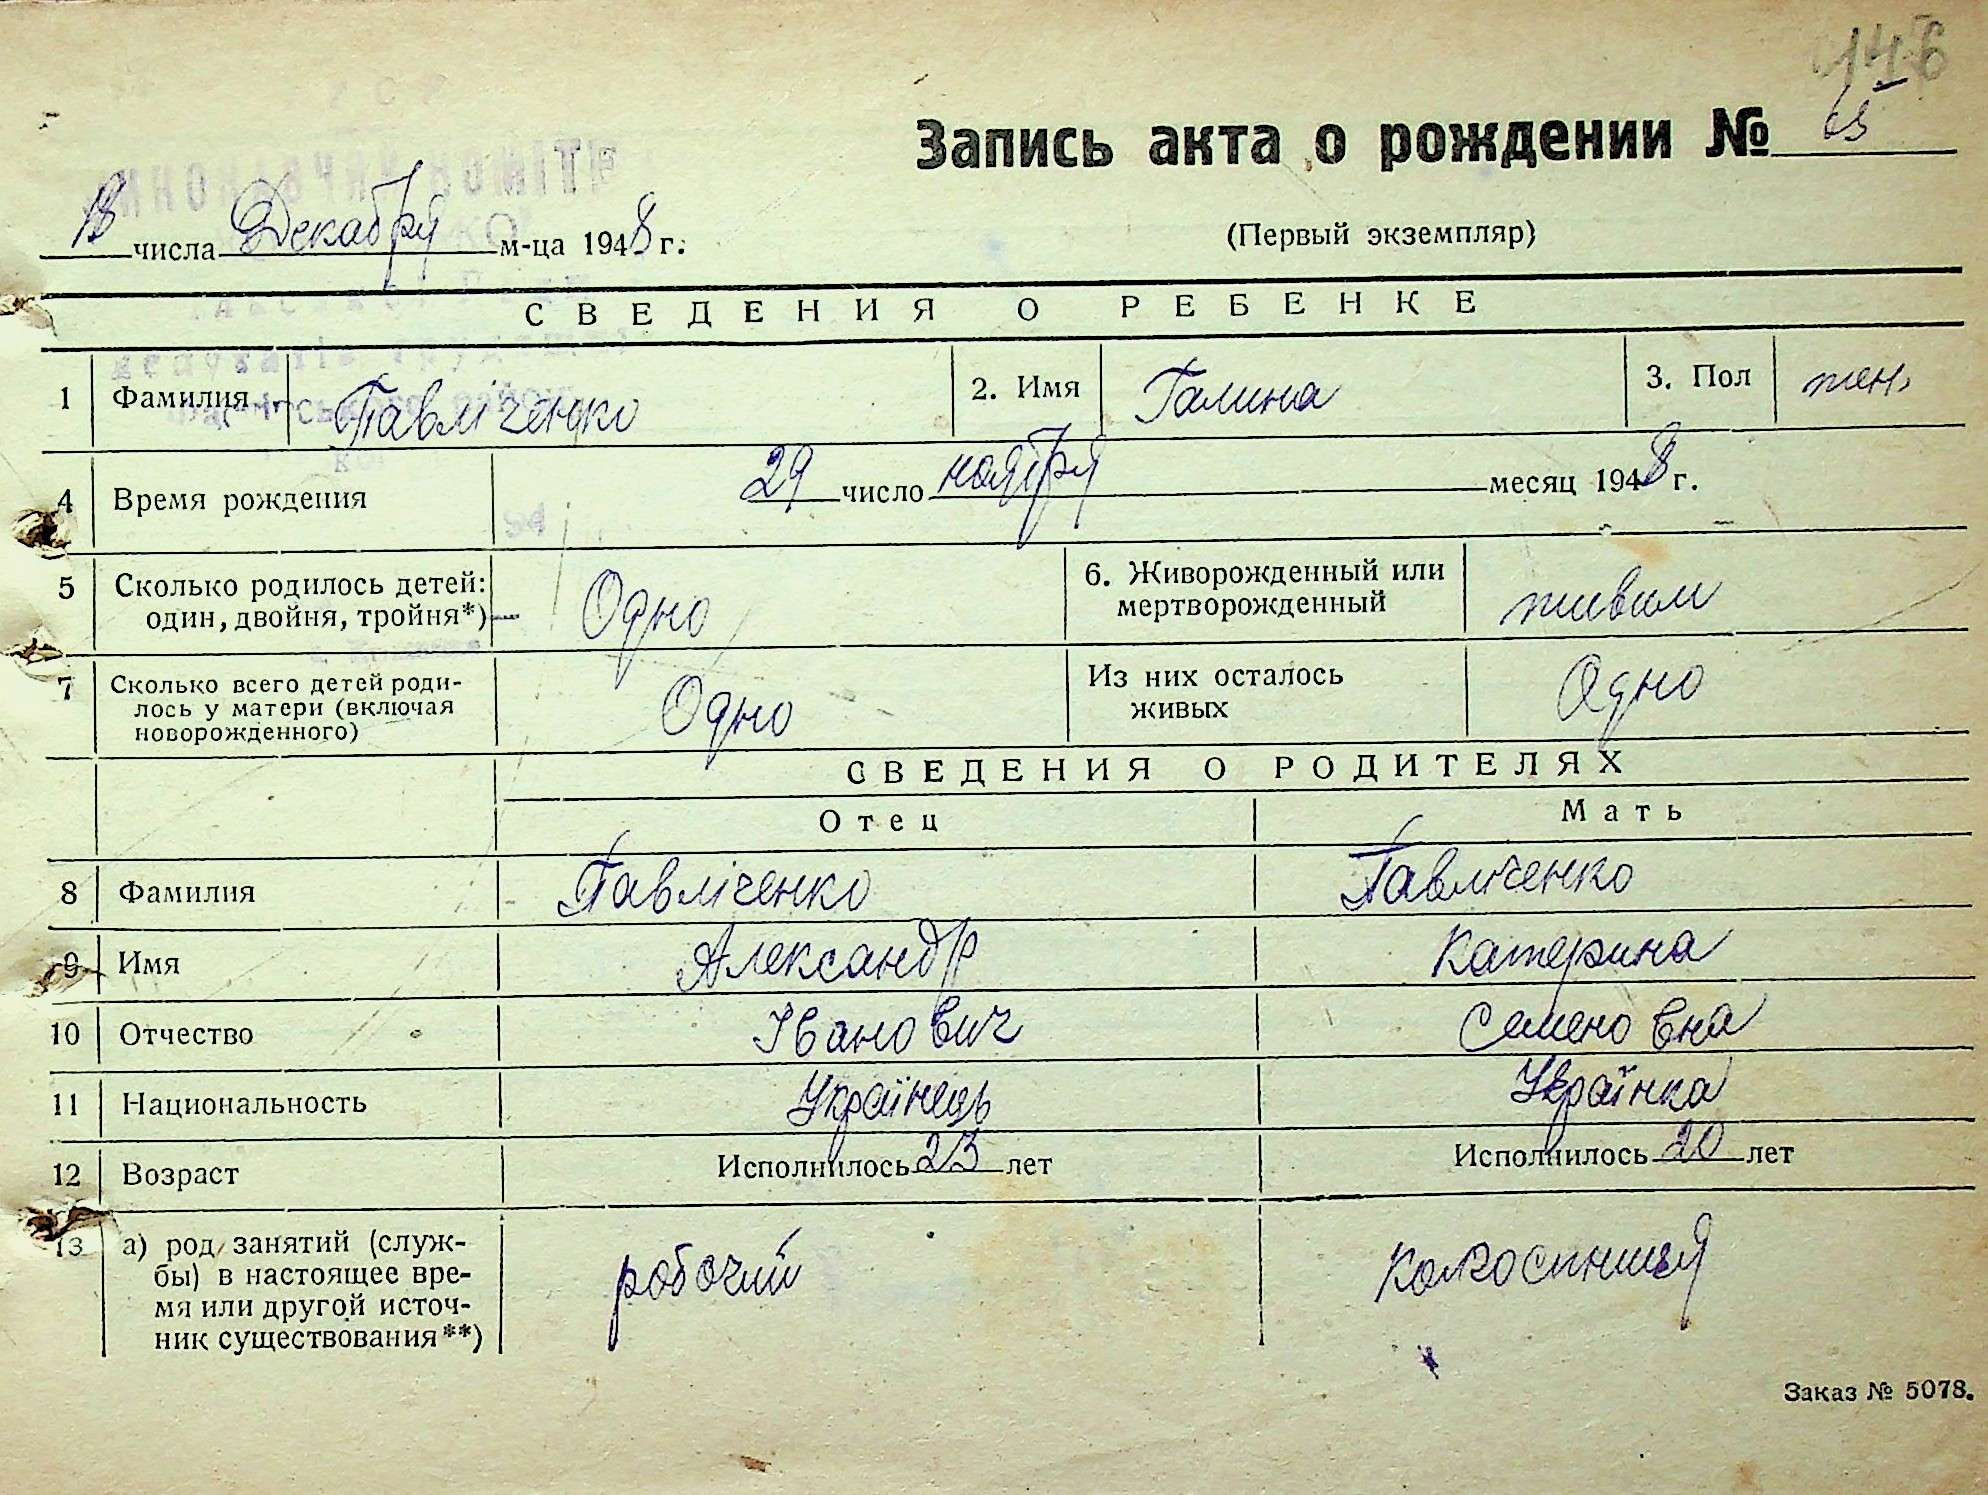 146
Запись акта о рождении № 65
числа Декабря м-ца 1948 г.
(Первый экземпляр)
СВЕДЕНИЯ О РЕБЕНКЕ
1 Фамилия Павліченко 2. Имя Галина 3. Пол жен.
4 Время рождения 29 число ноября месяц 1948 г.
5 Сколько родилось детей: один, двойня, тройня*) Одно 6. Живорожденный или мертворожденный живим
7 Сколько всего детей роди-
лось у матери (включая
новорожденного) Одно Из них осталось живых Одно
СВЕДЕНИЯ О РОДИТЕЛЯХ
Отец Мать
8 Фамилия Павліченко Павліченко
9 Имя Александр Катерина
10 Отчество Іванович Семеновна
11 Национальность Українець Українка
12 Возраст Исполнилось 23 лет Исполнилось 20 лет
13 а) род занятий (служ-
бы) в настоящее вре-
мя или другой источ-
ник существования**) робочий
Заказ № 5078.